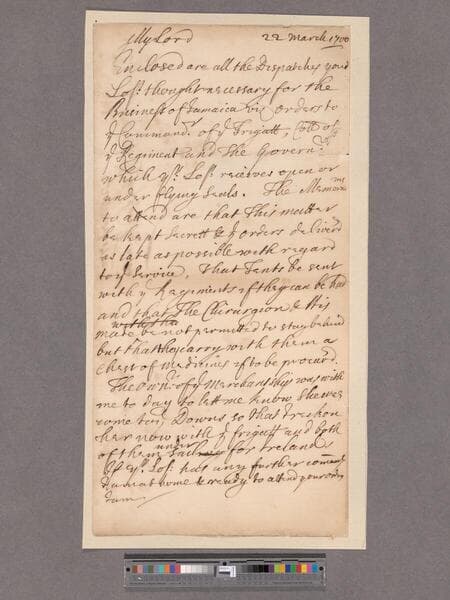 My Lord 22 March 1700
Enclosed are all the Dispatches your
Losp. thought necessary for the
Business of Jamaica viz orders to
ye Command.r of ye Frigatt, Coll of
ye Regiment and The Govern.r
which yr. Losp. receives open or
under flying seals. The Memor.ms
to attend are that This matter
be kept secrett & ye orders deliver'd
as late as possible with regard
to ye service, That Tents be sent
with ye Regiments if they can be had
and that The Chirurgion & His
mate be not permitted to stay behind
but That they carry with them a
Chest of Medicines if to be procurd.
The Own.r of ye Merchant ship was with
me to day to lett me know she was
come to ye Downs so that I reckon
her now with ye frigatt and both
of them under sail for Ireland
If yr. Losp. has any further commands
I am at home & ready to attend your